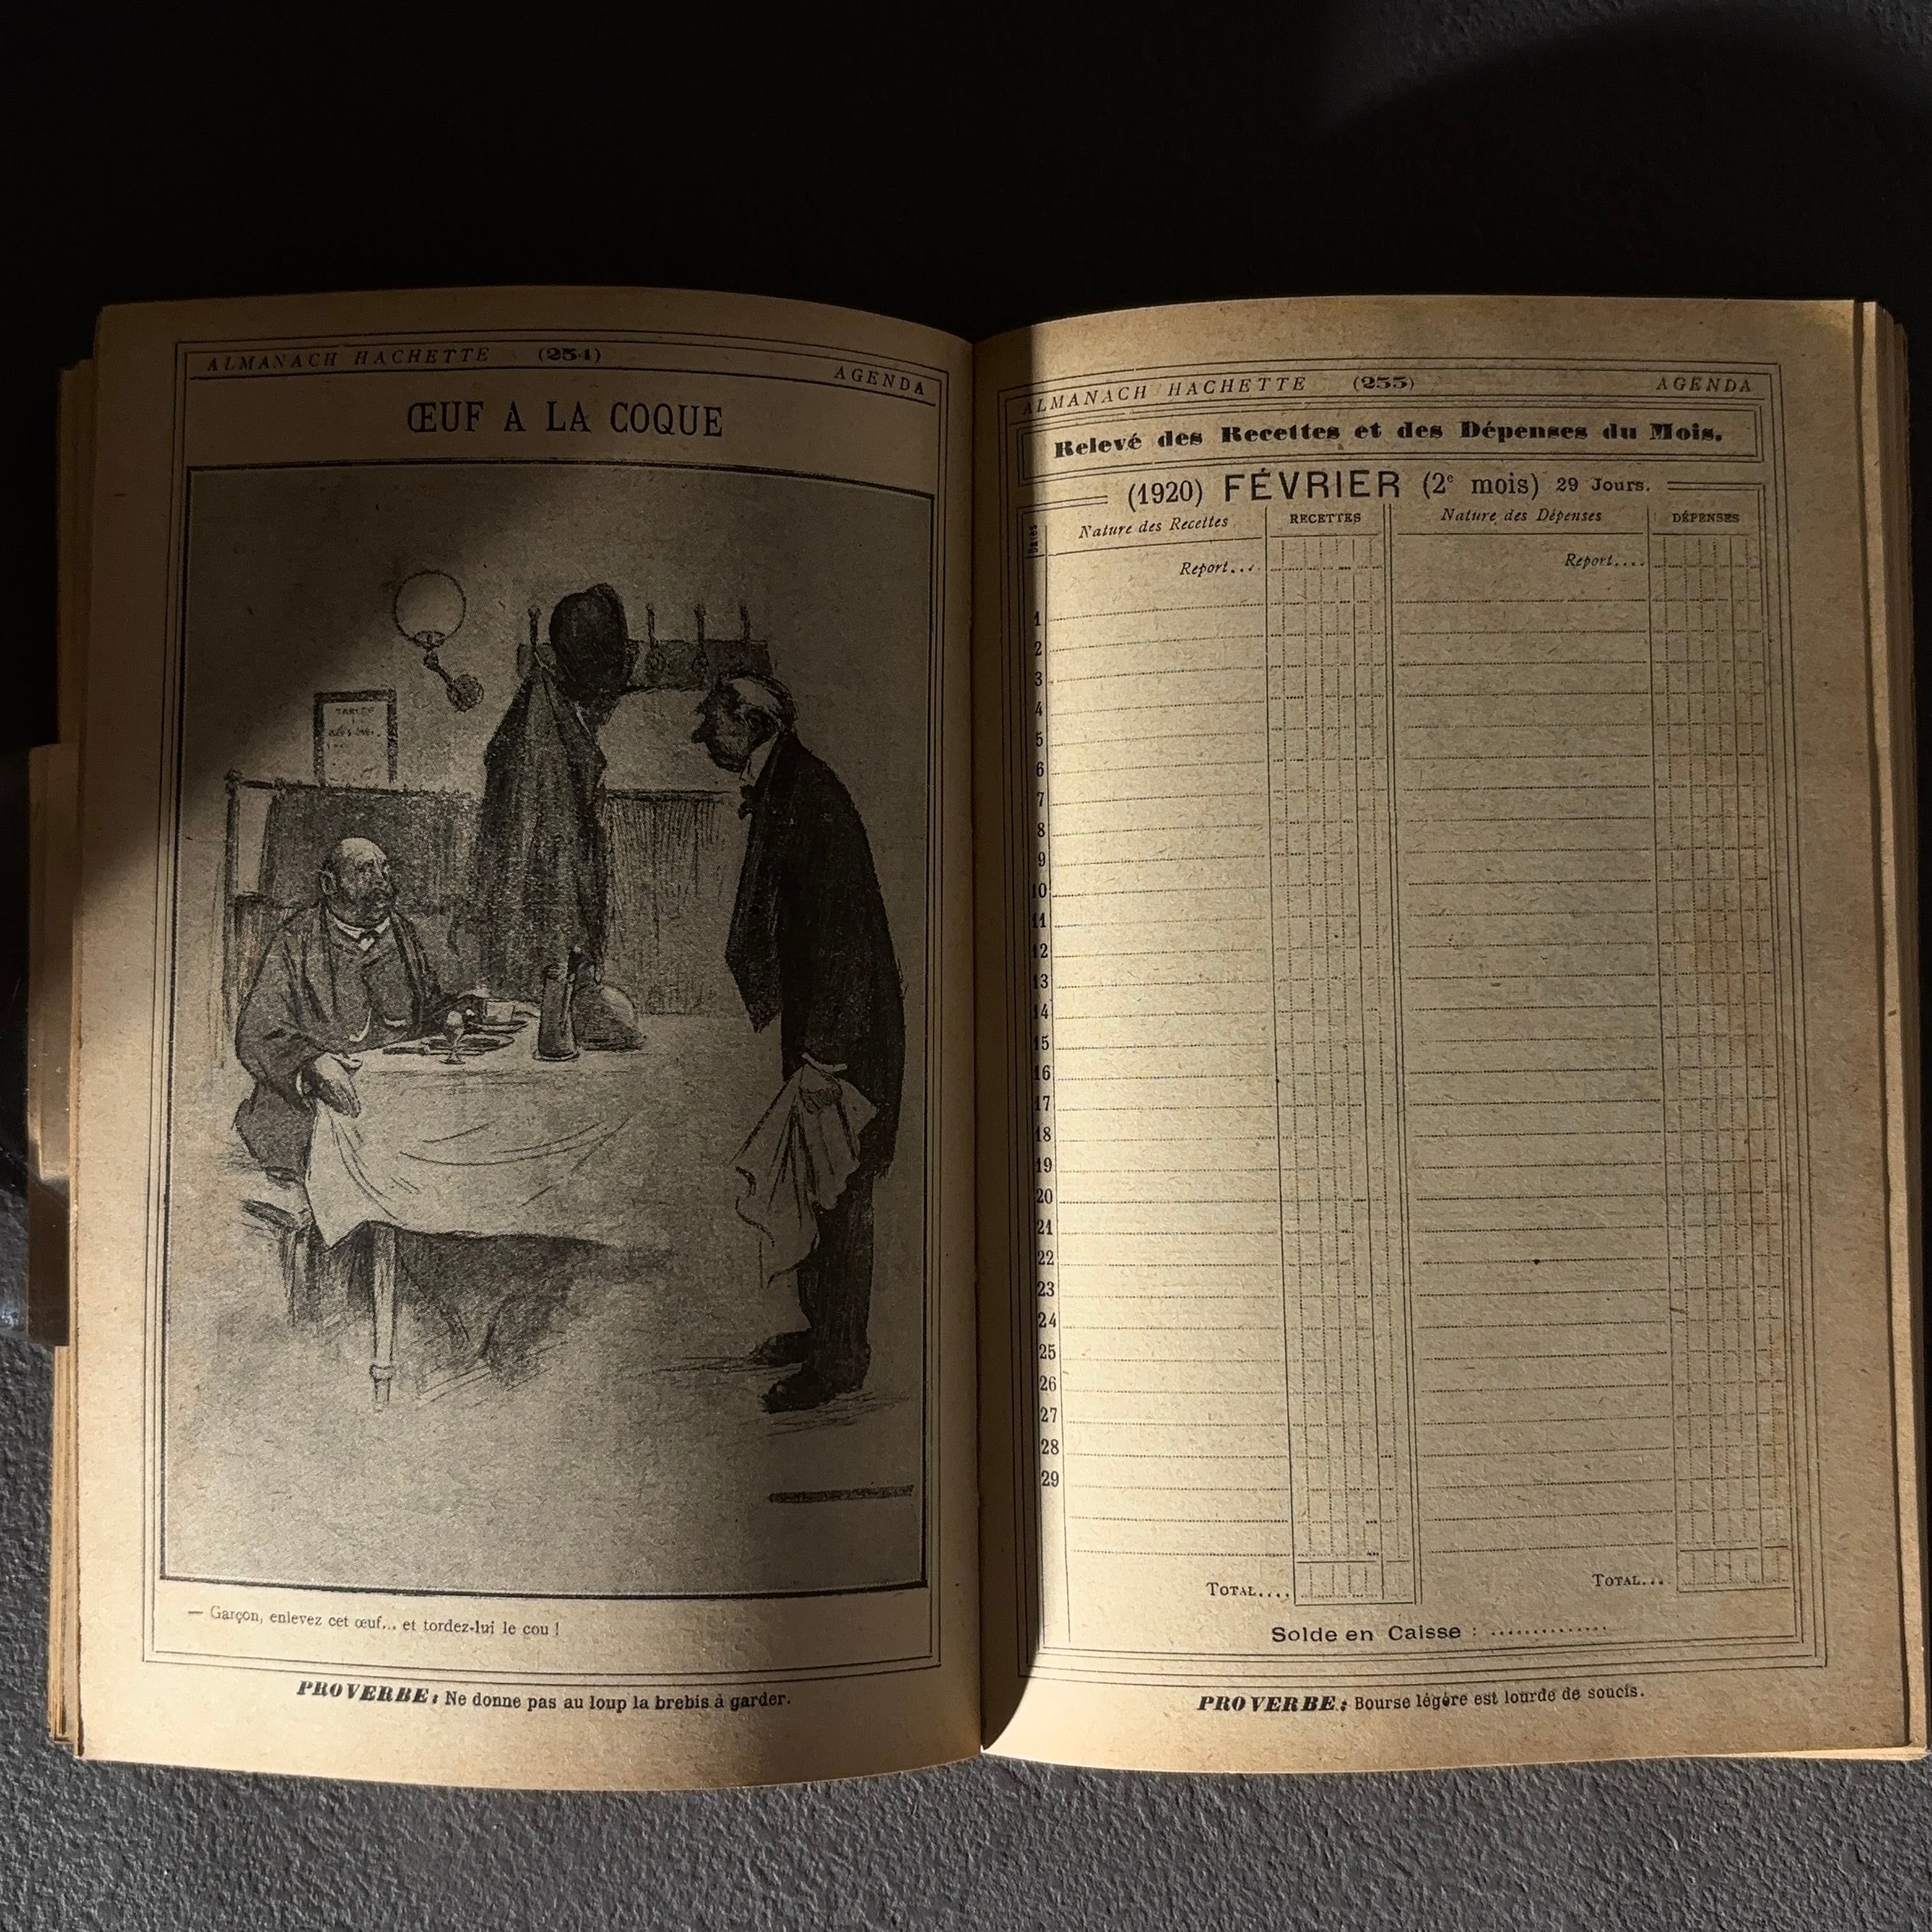 ALMANACH HACHETTE (254) AGENDA
ŒUF A LA COQUE
TARIF
— Garçon, enlevez cet œuf... et tordez-lui le cou !
PROVERBE : Ne donne pas au loup la brebis à garder.
ALMANACH HACHETTE (255) AGENDA
Relevé des Recettes et des Dépenses du Mois.
(1920) FÉVRIER (2e mois) 29 Jours.
Dates Nature des Recettes RECETTES Nature des Dépenses DÉPENSES
Report... Report....
1
2
3
4
5
6
7
8
9
10
11
12
13
14
15
16
17
18
19
20
21
22
23
24
25
26
27
28
29
TOTAL.... TOTAL...
Solde en Caisse : ..............
PROVERBE : Bourse légère est lourde de soucis.